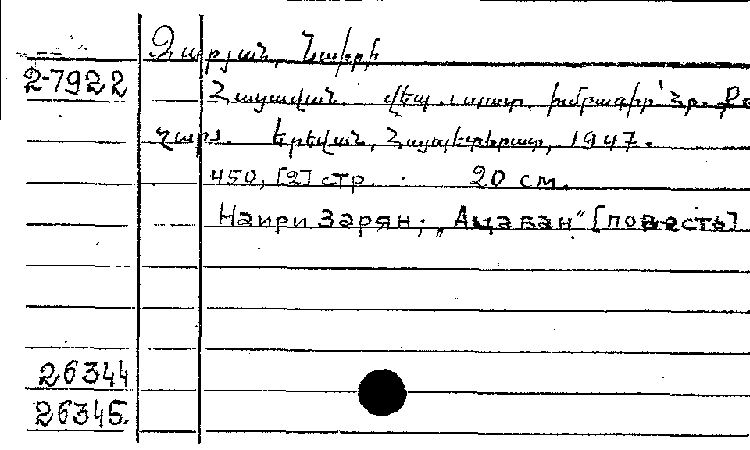 Զարյան, Նաիրի
2-7922
Հացավան. վեպ. պատ. խմբագիր՝ Հր. Քո
չար. Երևան, Հայպետհրատ, 1947.
450, [2] стр. 20 см.
Наири Зарян; „Ацаван“ [повесть]
26344
26345.